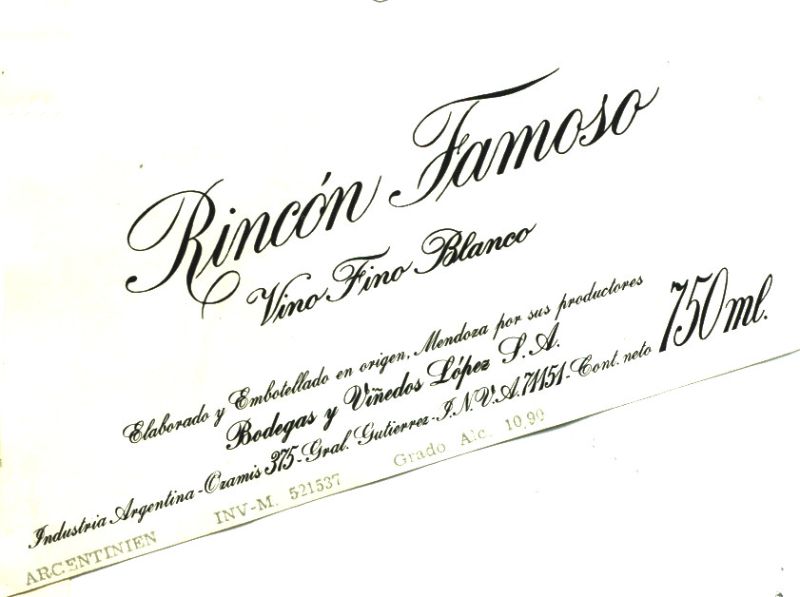 Rincón Famoso
Vino Fino Blanco
Elaborado y Embotellado en origen, Mendoza por sus productores
Bodegas y Viñedos López S.A.
Industria Argentina-Ozamis 375-Gral. Gutierrez-I.N.V.A.71151-Cont. neto 750 ml.
ARGENTINIEN INV-M. 521537 Grado Alc. 10,90